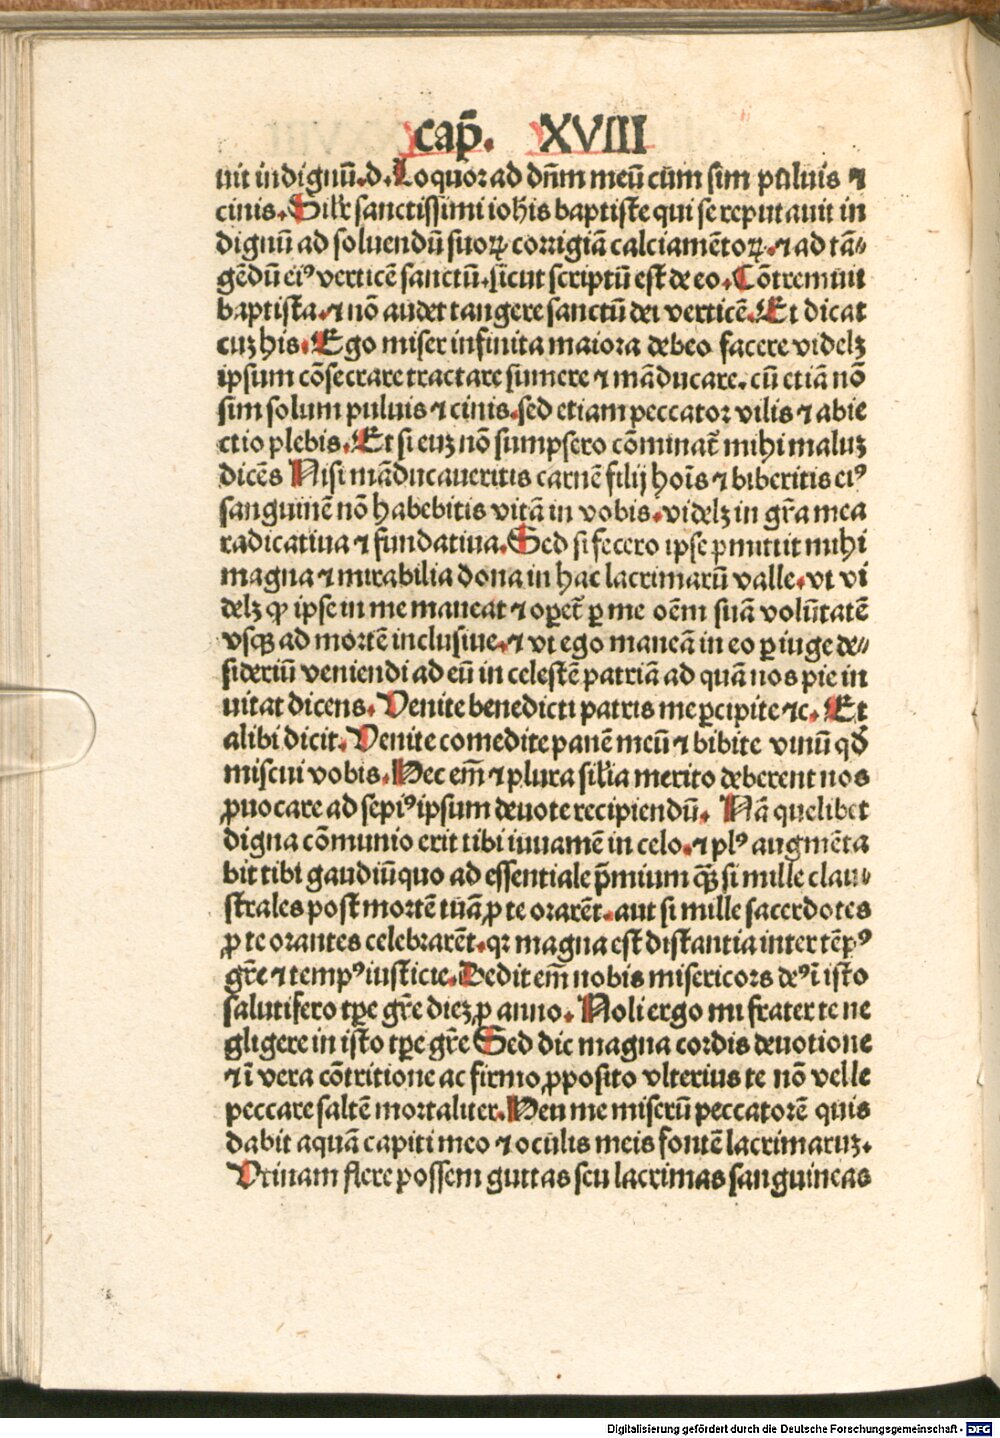 cap̃. XVIII
uit indignū.d.Loquor ad dñm meū cum sim puluis ⁊
cinis. Silr̃ sanctissimi ioh̃is baptiste qui se reputauit in
dignū ad soluendū suoꝝ corrigiā calciamētoꝝ. ⁊ ad tā⸗
gēdū eiꝰ verticē sanctū. sicut scriptū est de eo. Cōtremuit
baptista. ⁊ nō audet tangere sanctū dei verticē. Et dicat
cuz his. Ego miser infinita maiora debeo facere videlꝫ
ipsum cōsecrare tractare sumere ⁊ māducare. cū etiā nō
sim solum puluis ⁊ cinis. sed etiam peccator vilis ⁊ abie
ctio plebis. Et si euꝫ nō sumpsero cōminat̃ mihi maluꝫ
dicēs Nisi māducaueritis carnē filij hoīs ⁊ biberitis eiꝰ
sanguinē nō habebitis vitā in vobis. videlꝫ in gr̃a mea
radicatiua ⁊ fundatiua. Sed si fecero ipse ꝓmittit mihi
magna ⁊ mirabilia dona in hac lacrimarū valle. vt vi
delꝫ ꝙ ipse in me maneat ⁊ oꝑet̃ ꝑ me oēm suā volūtatē
vsqꝫ ad mortē inclusiue. ⁊ vt ego maneā in eo ꝑ iuge de⸗
sideriū veniendi ad eū in celestē patriā ad quā nos pie in
uitat dicens. Venite benedicti patris mei ꝑcipite ⁊c. Et
alibi dicit. Venite comedite panē meū ⁊ bibite vinū qđ
miscui vobis. Hec em̄ ⁊ plura silia merito deberent nos
ꝓuocare ad sepiꝰ ipsum deuote recipiendū. Nā quelibet
digna cōmunio erit tibi iuuamē in celo. ⁊ plꝰ augmēta
bit tibi gaudiū quo ad essentiale p̄mium qꝫ̄ si mille clau⸗
strales post mortē tuā ꝓ te orarēt. aut si mille sacerdotes
ꝓ te orantes celebrarēt. qꝛ magna est distantia inter tēpꝰ
gr̃e ⁊ tempꝰ iusticie. Dedit em̄ nobis misericors deꝰ ī isto
salutifero tꝑe gr̃e dieꝫ ꝓ anno. Noli ergo mi frater te ne
gligere in isto tꝑe gr̃e Sed dic magna cordis deuotione
⁊ ī vera cōtritione ac firmo ꝓposito vlterius te nō velle
peccare saltē mortaliter. Heu me miserū peccatorē quis
dabit aquā capiti meo ⁊ oculis meis fontē lacrimaruꝫ.
Vtinam flere possem guttas seu lacrimas sanguineas
Digitalisierung gefördert durch die Deutsche Forschungsgemeinschaft - DFG